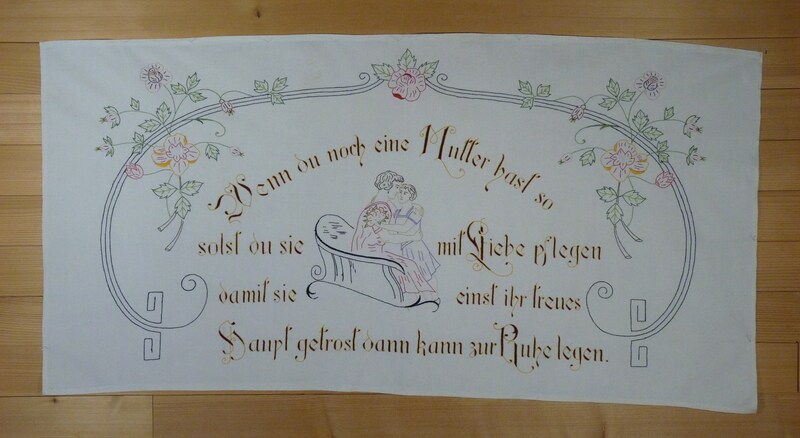 Wenn du noch eine Mutter hast so
solst du sie mit Liebe pflegen
damit sie einst ihr treues
Haupt getrost dann kann zur Ruhe legen.